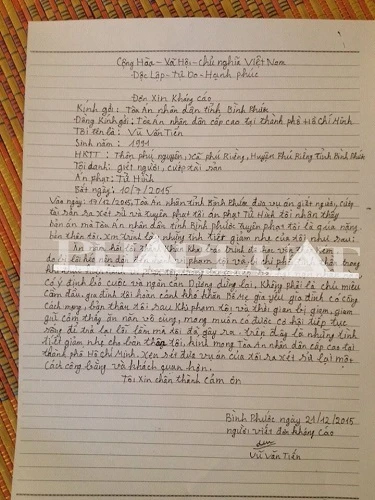 Cộng Hòa - Xã Hội - Chủ nghĩa Việt Nam
Độc Lập - Tự Do - Hạnh phúc
Đơn Xin Kháng cáo
Kính gởi: Tòa Án nhân dân tỉnh Bình Phước
Đồng Kính gởi: Tòa Án nhân dân cấp cao tại thành phố Hồ Chí Minh
Tôi tên là: Vũ Văn Tiến
Sinh năm: 1991
HKTT: Thôn phú nguyên, xã phú Riềng, Huyện Phú Riềng Tỉnh Bình Phước
Tội danh: giết người, cướp tài sản
Án phạt: Tử Hình
Bắt ngày: 10/7/2015
Vào ngày: 17/12/2015, Tòa Án nhân dân tỉnh Bình Phước đưa vụ án giết người, cướp
tài sản ra xét xử và tuyên phạt tôi án phạt Tử Hình tôi nhận thấy
bản án mà Tòa Án nhân dân tỉnh Bình phước tuyên phạt tôi là quá nặng
bản thân tôi. Xin trình bày những tình tiết giảm nhẹ của tôi như sau:
phạm tội và bị chi phối
có ý định lôi cuốn và ngăn cản Dương dừng lại, Không phải là chủ mưu
cầm đầu, gia đình tôi hoàn cảnh khó khăn Bố mẹ già yếu, gia đình có công
cách mạng, bản thân tôi sau khi phạm tội và thời gian bị giam, giam
giữ cảm thấy ăn năn vô cùng, mong muốn có được cơ hội tiếp tục
sống để trả lại lỗi lầm mà tôi đã gây ra. trên đây là những tình
tiết giảm nhẹ cho bản thân tôi, kính mong Tòa Án nhân dân cấp cao tại
thành phố Hồ Chí Minh. Xem xét đưa vụ án của tôi ra xét xử lại một
cách công bằng và khách quan hơn.
Tôi Xin chân thành cảm ơn
Bình Phước ngày 21/12/2015
người viết đơn kháng cáo
Vũ Văn Tiến